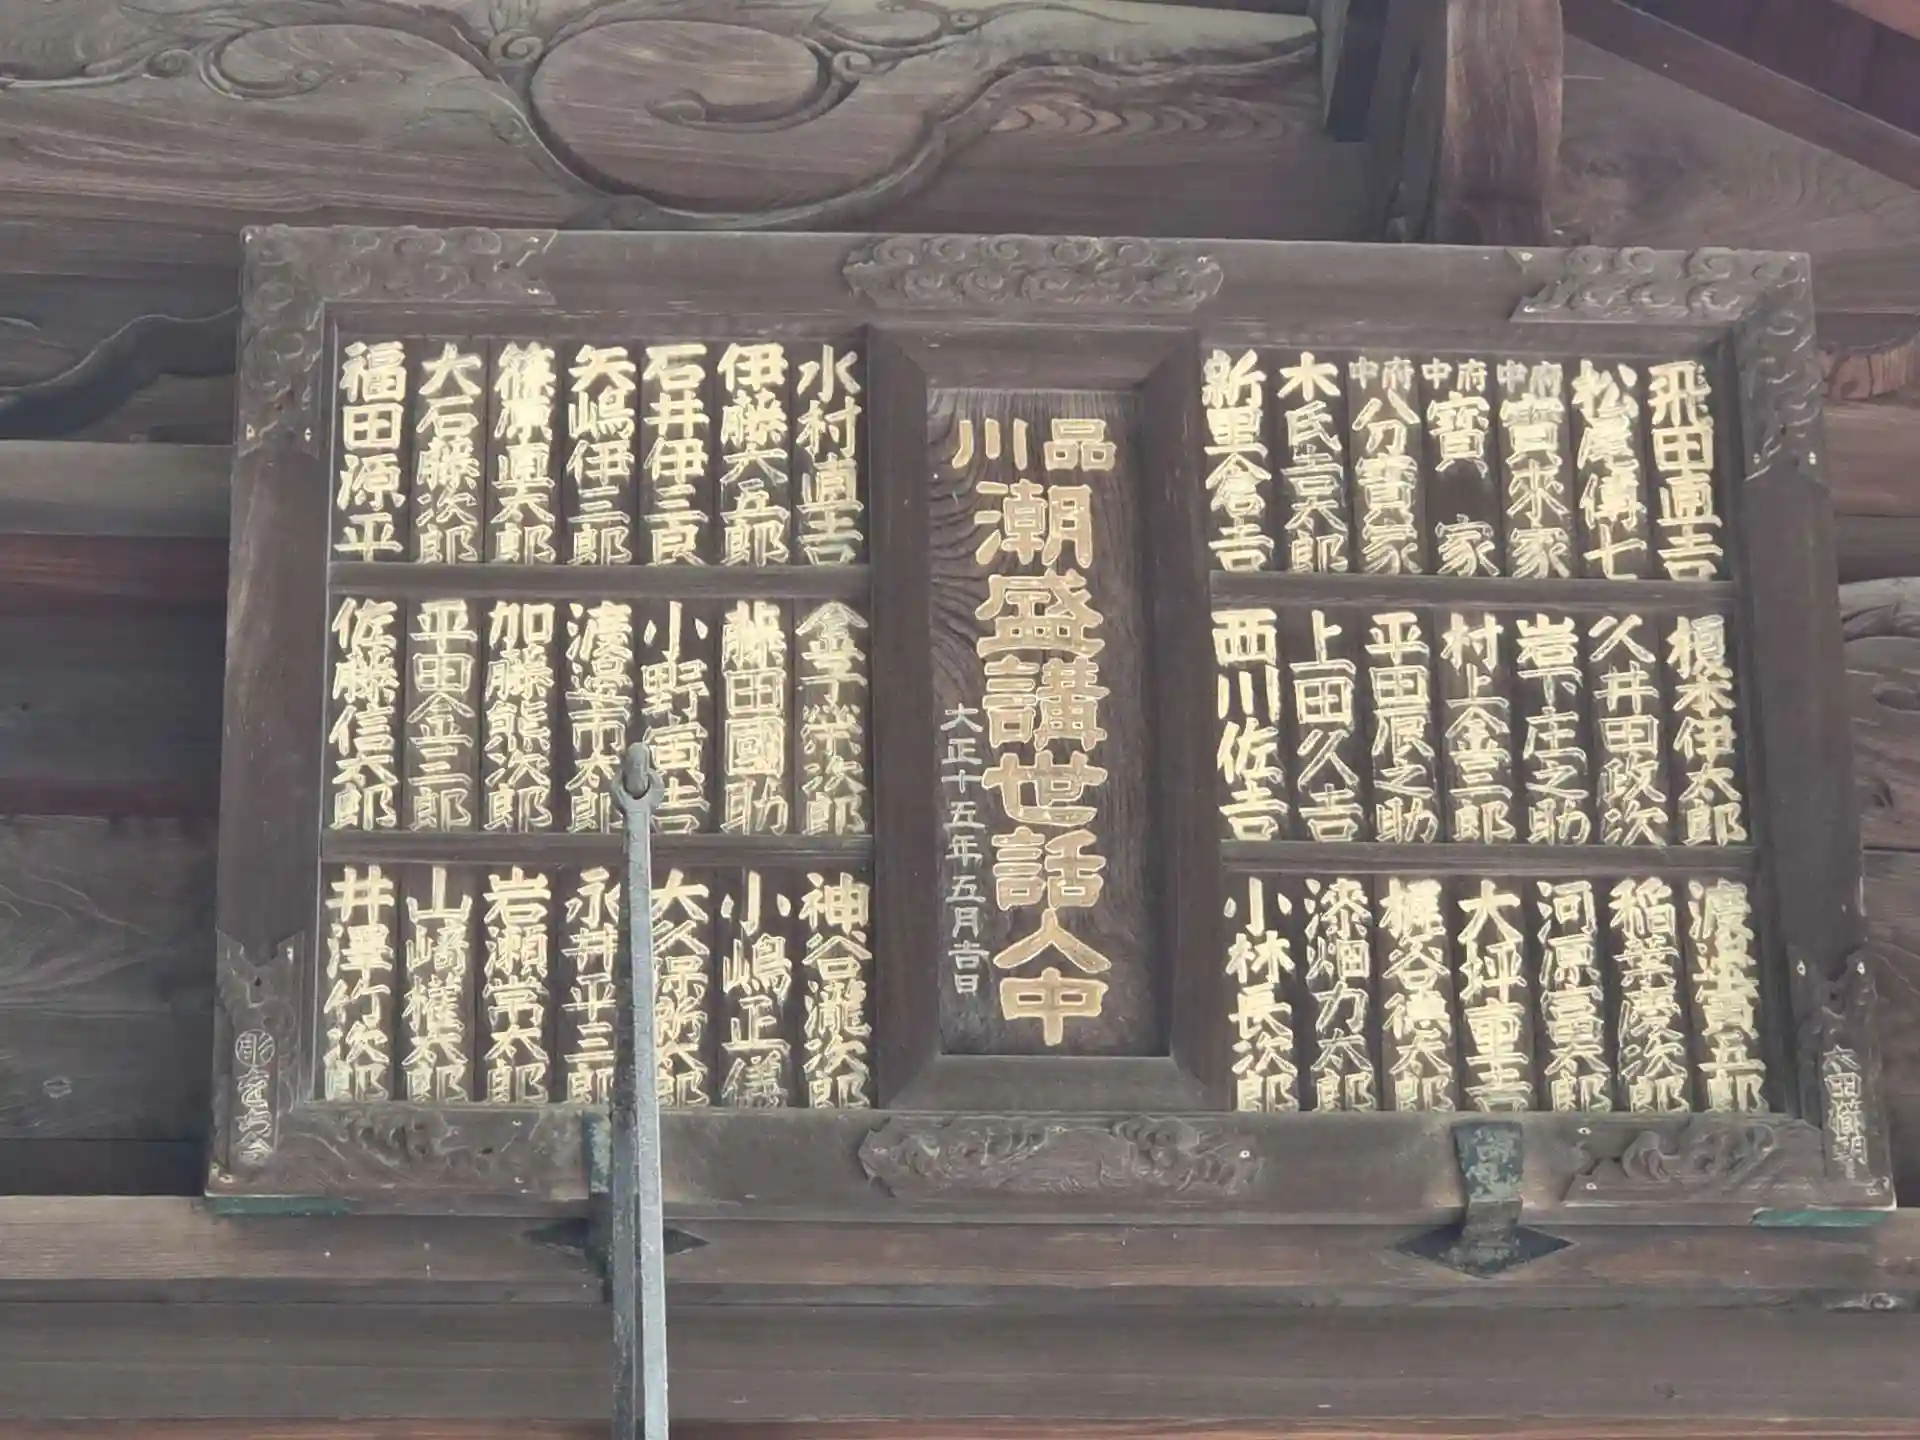 飛田直吉
松尾傳七
府中寳來家
府中寳家
府中分寳家
木氏喜久郎
新里倉吉
榎本伊太郎
久井田政次
岩下庄之助
村上金三郎
平田辰之助
上田久吉
西川佐吉
渡邉寅五郎
稲葉慶次郎
河原冨太郎
大坪重吉
梶谷德太郎
漆畑力太郎
小林長次郎
品川
潮盛講世話人中
大正十五年五月吉日
水村直吉
伊藤大五郎
石井伊三良
矢嶋伊三郎
篠原直太郎
大石藤次郎
福田源平
金子栄次郎
藤田國助
小野寅吉
渡邉市太郎
加藤熊次郎
平田金三郎
佐藤信太郎
神谷瀧次郎
小嶋正儀
大久保所太郎
永井平三郎
岩瀬常太郎
山﨑權太郎
井澤竹次郎